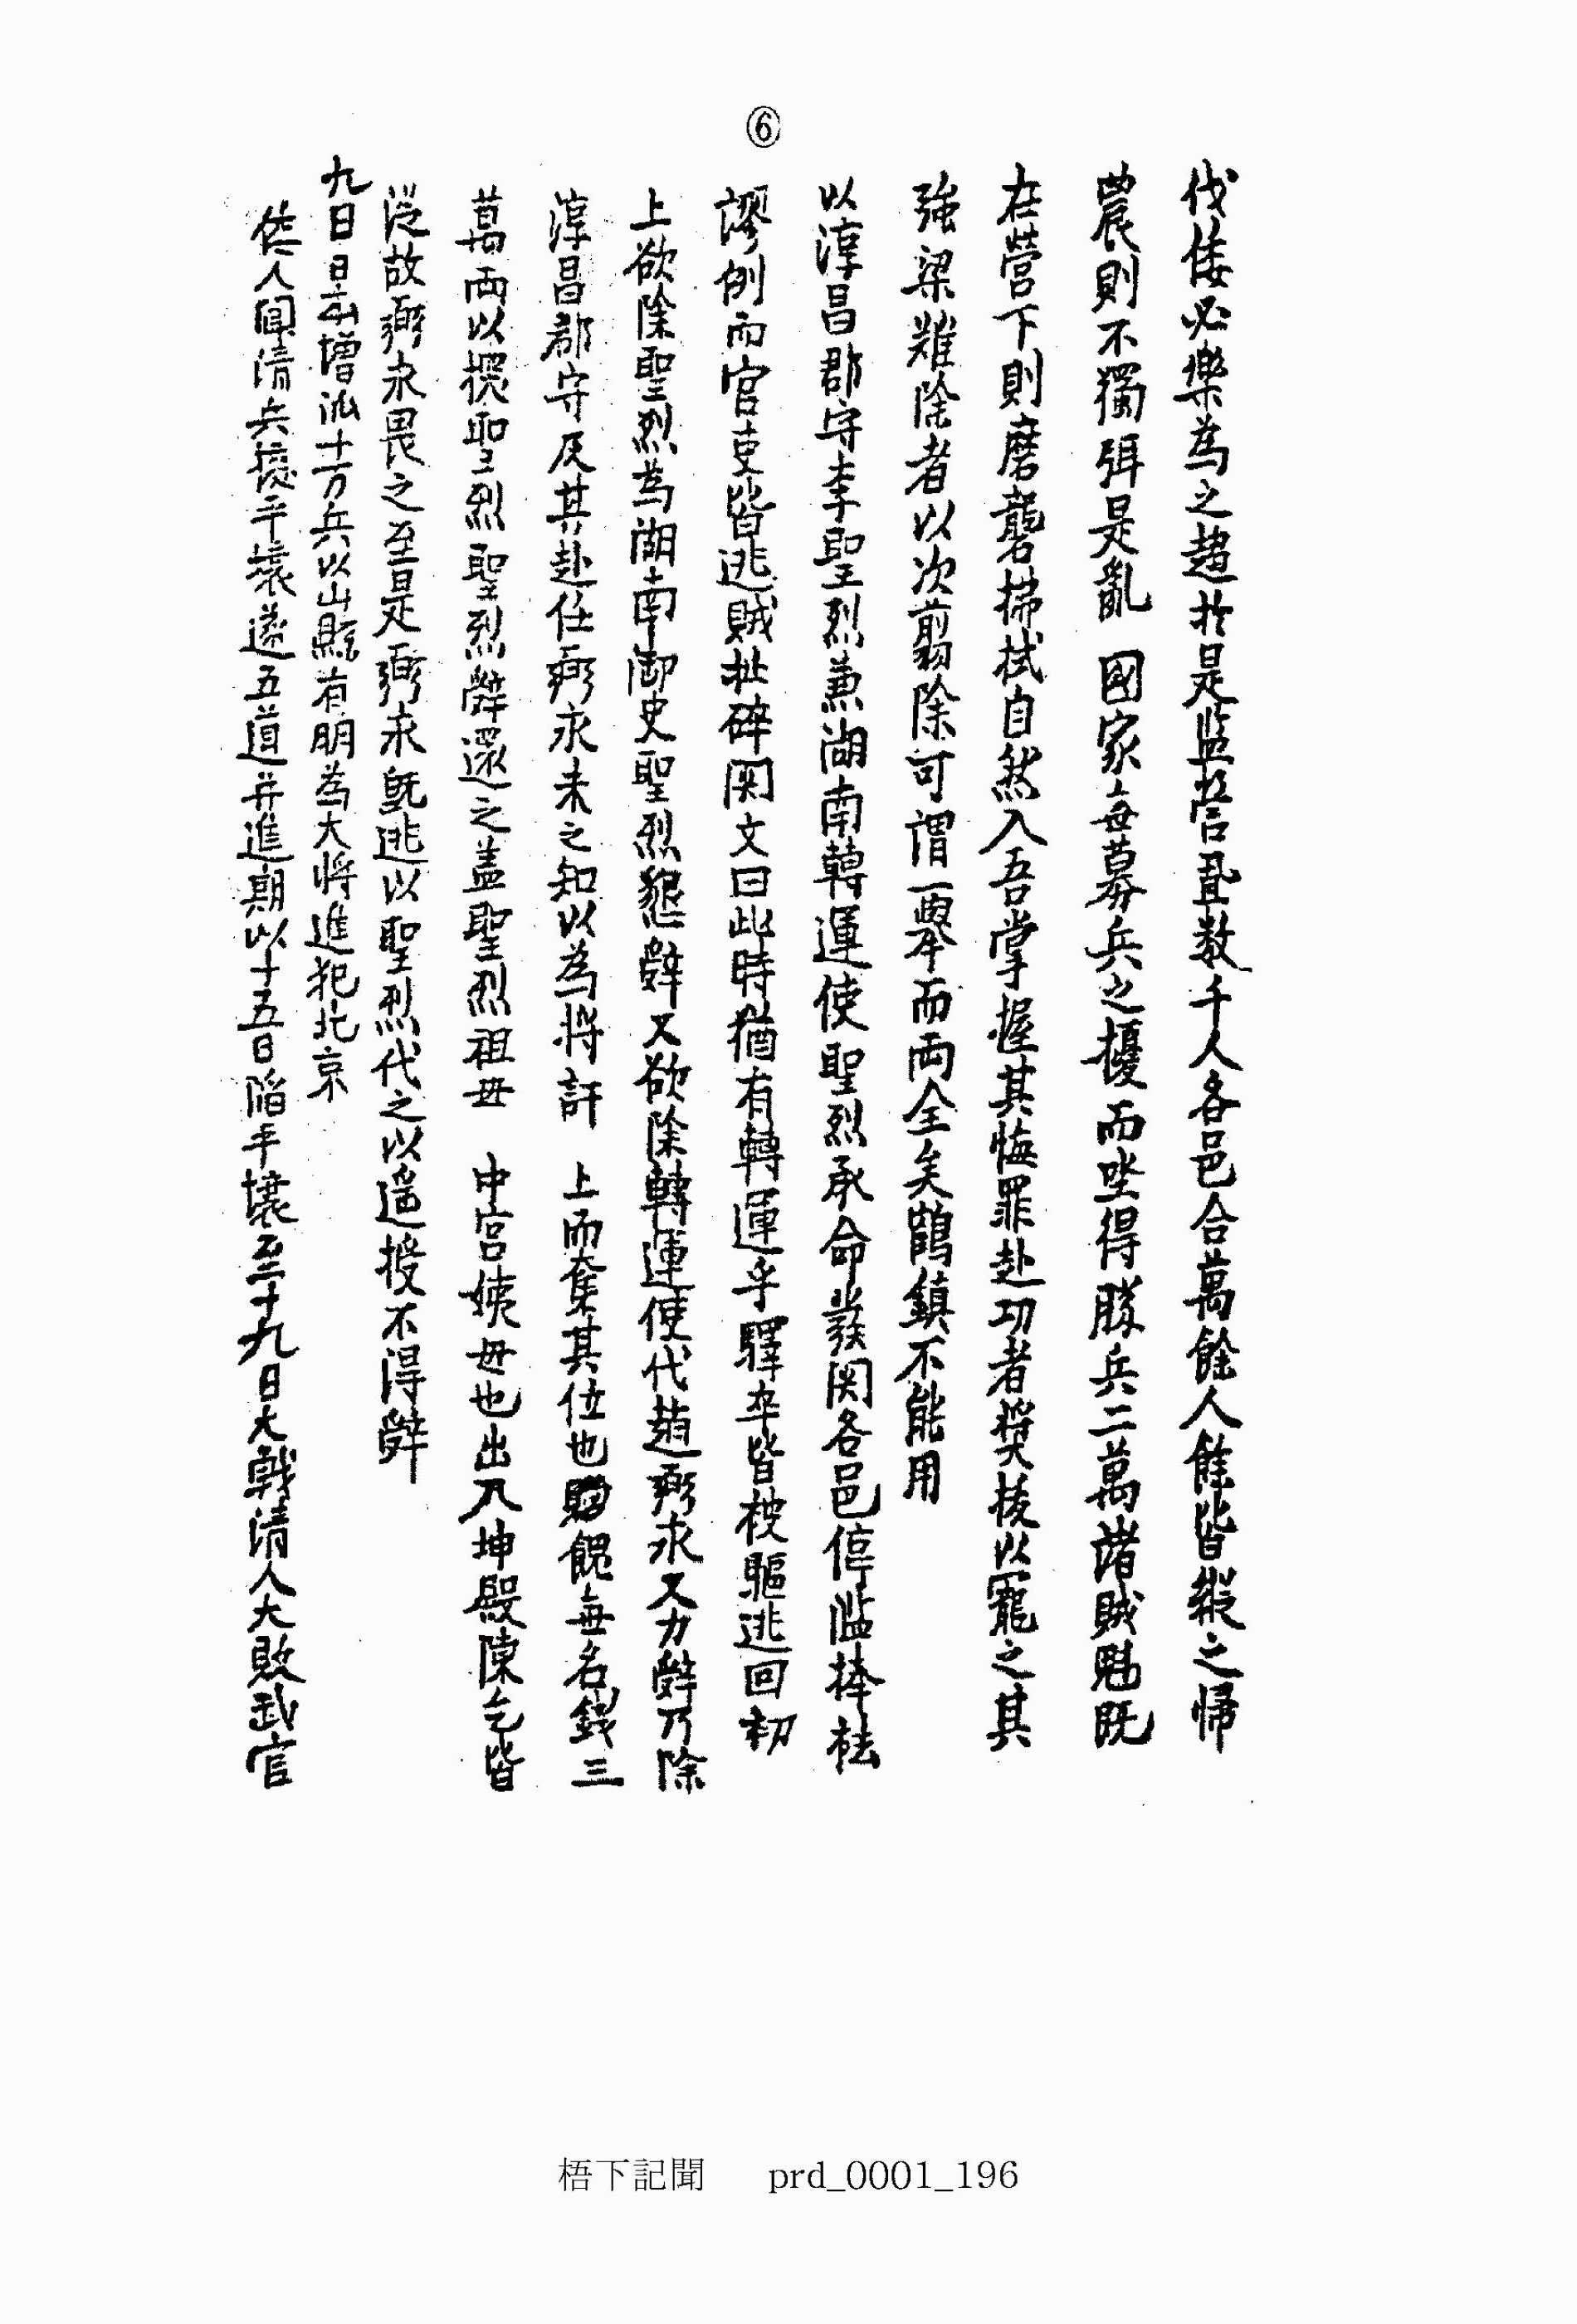 ⑥
伐倭必樂為之趨於是監營置数千人各邑合萬餘人餘皆縱之帰
農則不獨弭是亂 國家每募兵之擾而坐得勝兵二萬諸賊魁既
在營下則磨礱拂拭自然入吾掌握其悔罪赴功者奬拔以寵之其
强梁難除者以次翦除可謂一擧而両全矣鶴鎮不能用
以淳昌郡守李聖烈兼湖南轉運使聖烈承命發関各邑停濫捧袪
謬例而官吏皆逃賊扯碎関文曰此時猶有轉運乎驛卒皆被驅逃回初
上欲除聖烈為湖南御史聖烈懇辭又欲除轉運使代趙弼永又力辭乃除
淳昌郡守及其赴任弼永未之知以為將訐 上而奪其位也餽無名錢三
萬両以撄聖烈聖烈辭還之盖聖烈祖母 中宮姨母也出入坤殿陳乞皆
従故弼永畏之至是弼永既逃以聖烈代之以遥授不得辭
九日日本增派十万兵以山縣有朋為大将進犯北京
倭人聞清兵據平壤遂五道并進期以十五日陷平壤至十九日大戰清人大敗武官
梧下記聞 prd_0001_196